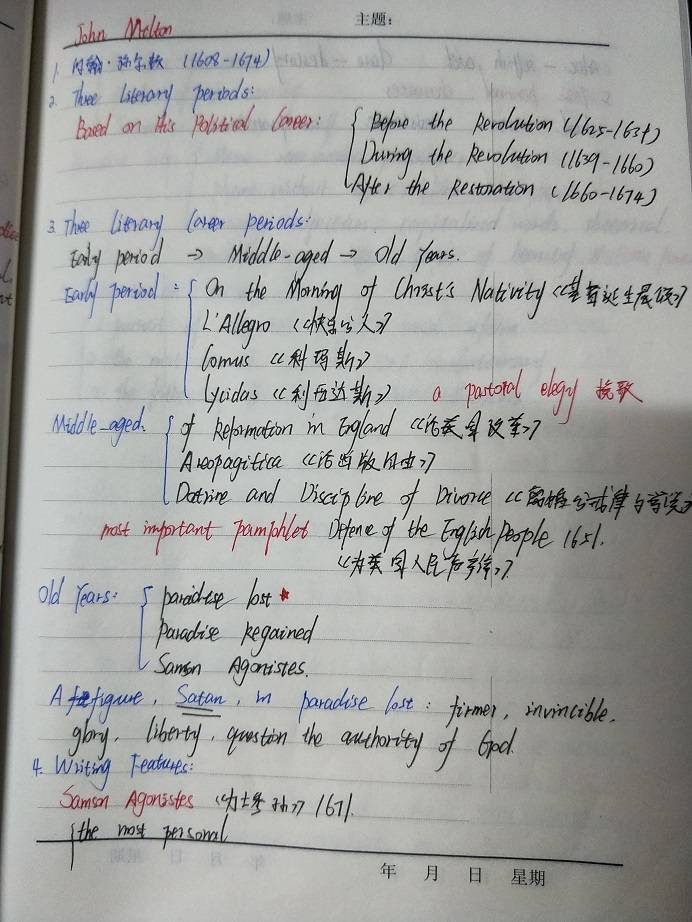 主题：
John Milton
1. 约翰·弥尔顿 (1608-1674)
2. Three literary periods:
Based on His Political Career: Before the Revolution (1625-1639)
During the Revolution (1639-1660)
After the Restoration (1660-1674)
3. Three Literary Career periods:
Early period → Middle-aged → Old Years.
Early period: On the Morning of Christ's Nativity 《基督诞生晨颂》
L'Allegro 《快乐的人》
Comus 《科玛斯》
Lycidas 《利西达斯》 a pastoral elegy 挽歌
Middle-aged: of Reformation in England 《论英国改革》
Areopagitica 《论出版自由》
Dotrine and Discipline of Divorce 《离婚的
most important pamphlet Defence of the English People 1651.
《为英国人民声辩》.
Old Years: paradise lost
Paradise Regained
Samson Agonistes.
A figure, Satan, in paradise lost: firmer, invincible,
glory, liberty, question the authority of God.
4. Writing Features:
Samson Agonistes 《力士参孙》 1671.
the most personal
年 月 日 星期